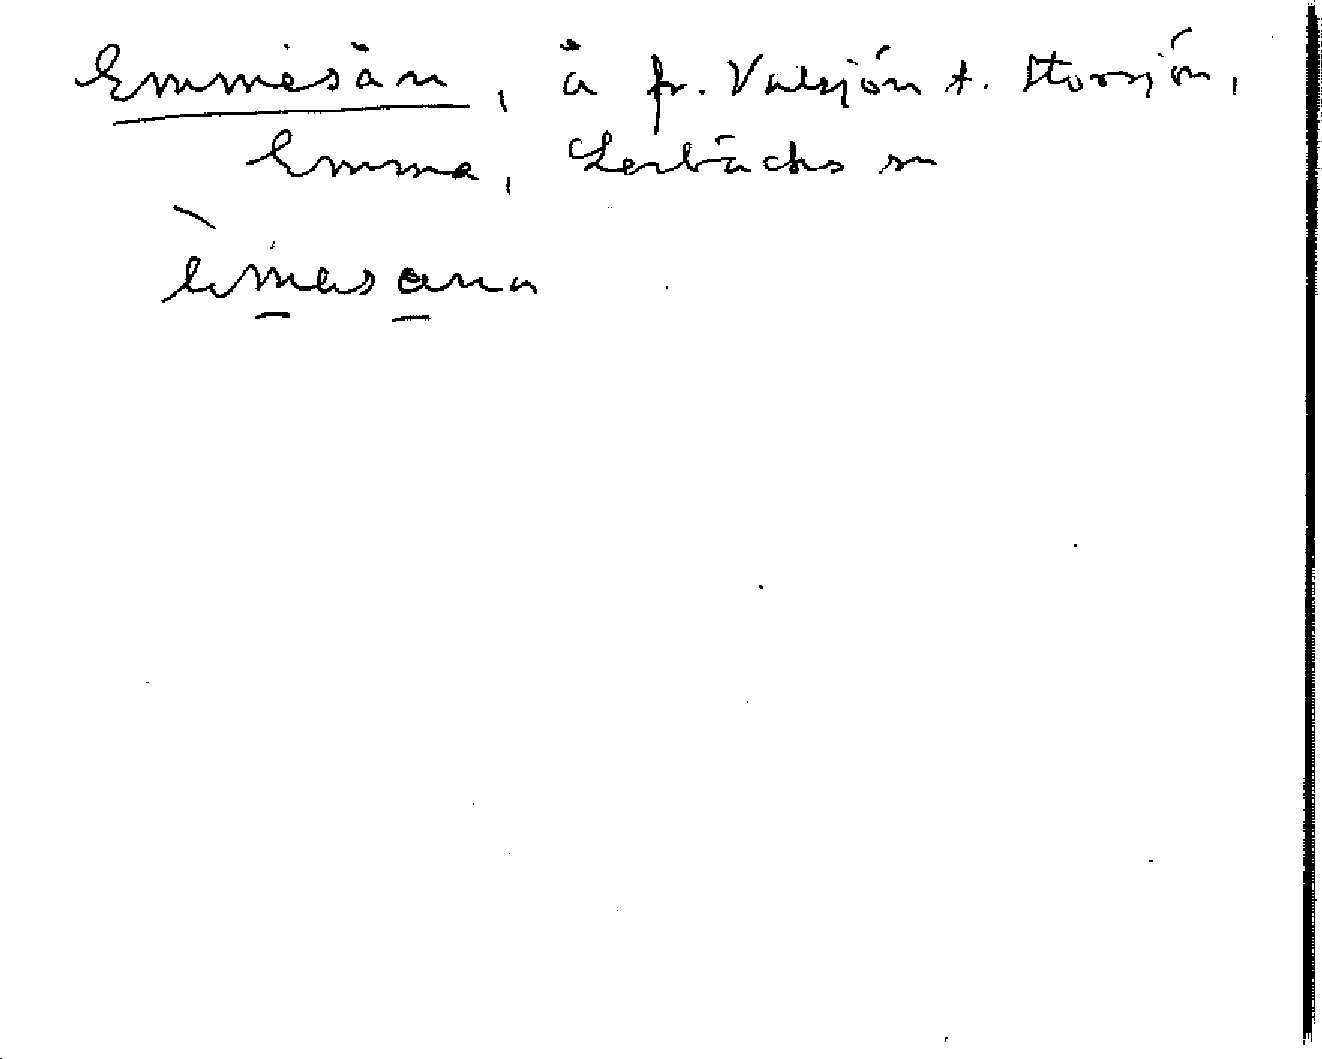 Emmesån, å fr. Valsjön t. Storsjön,
Emma, Lerbäcks sn